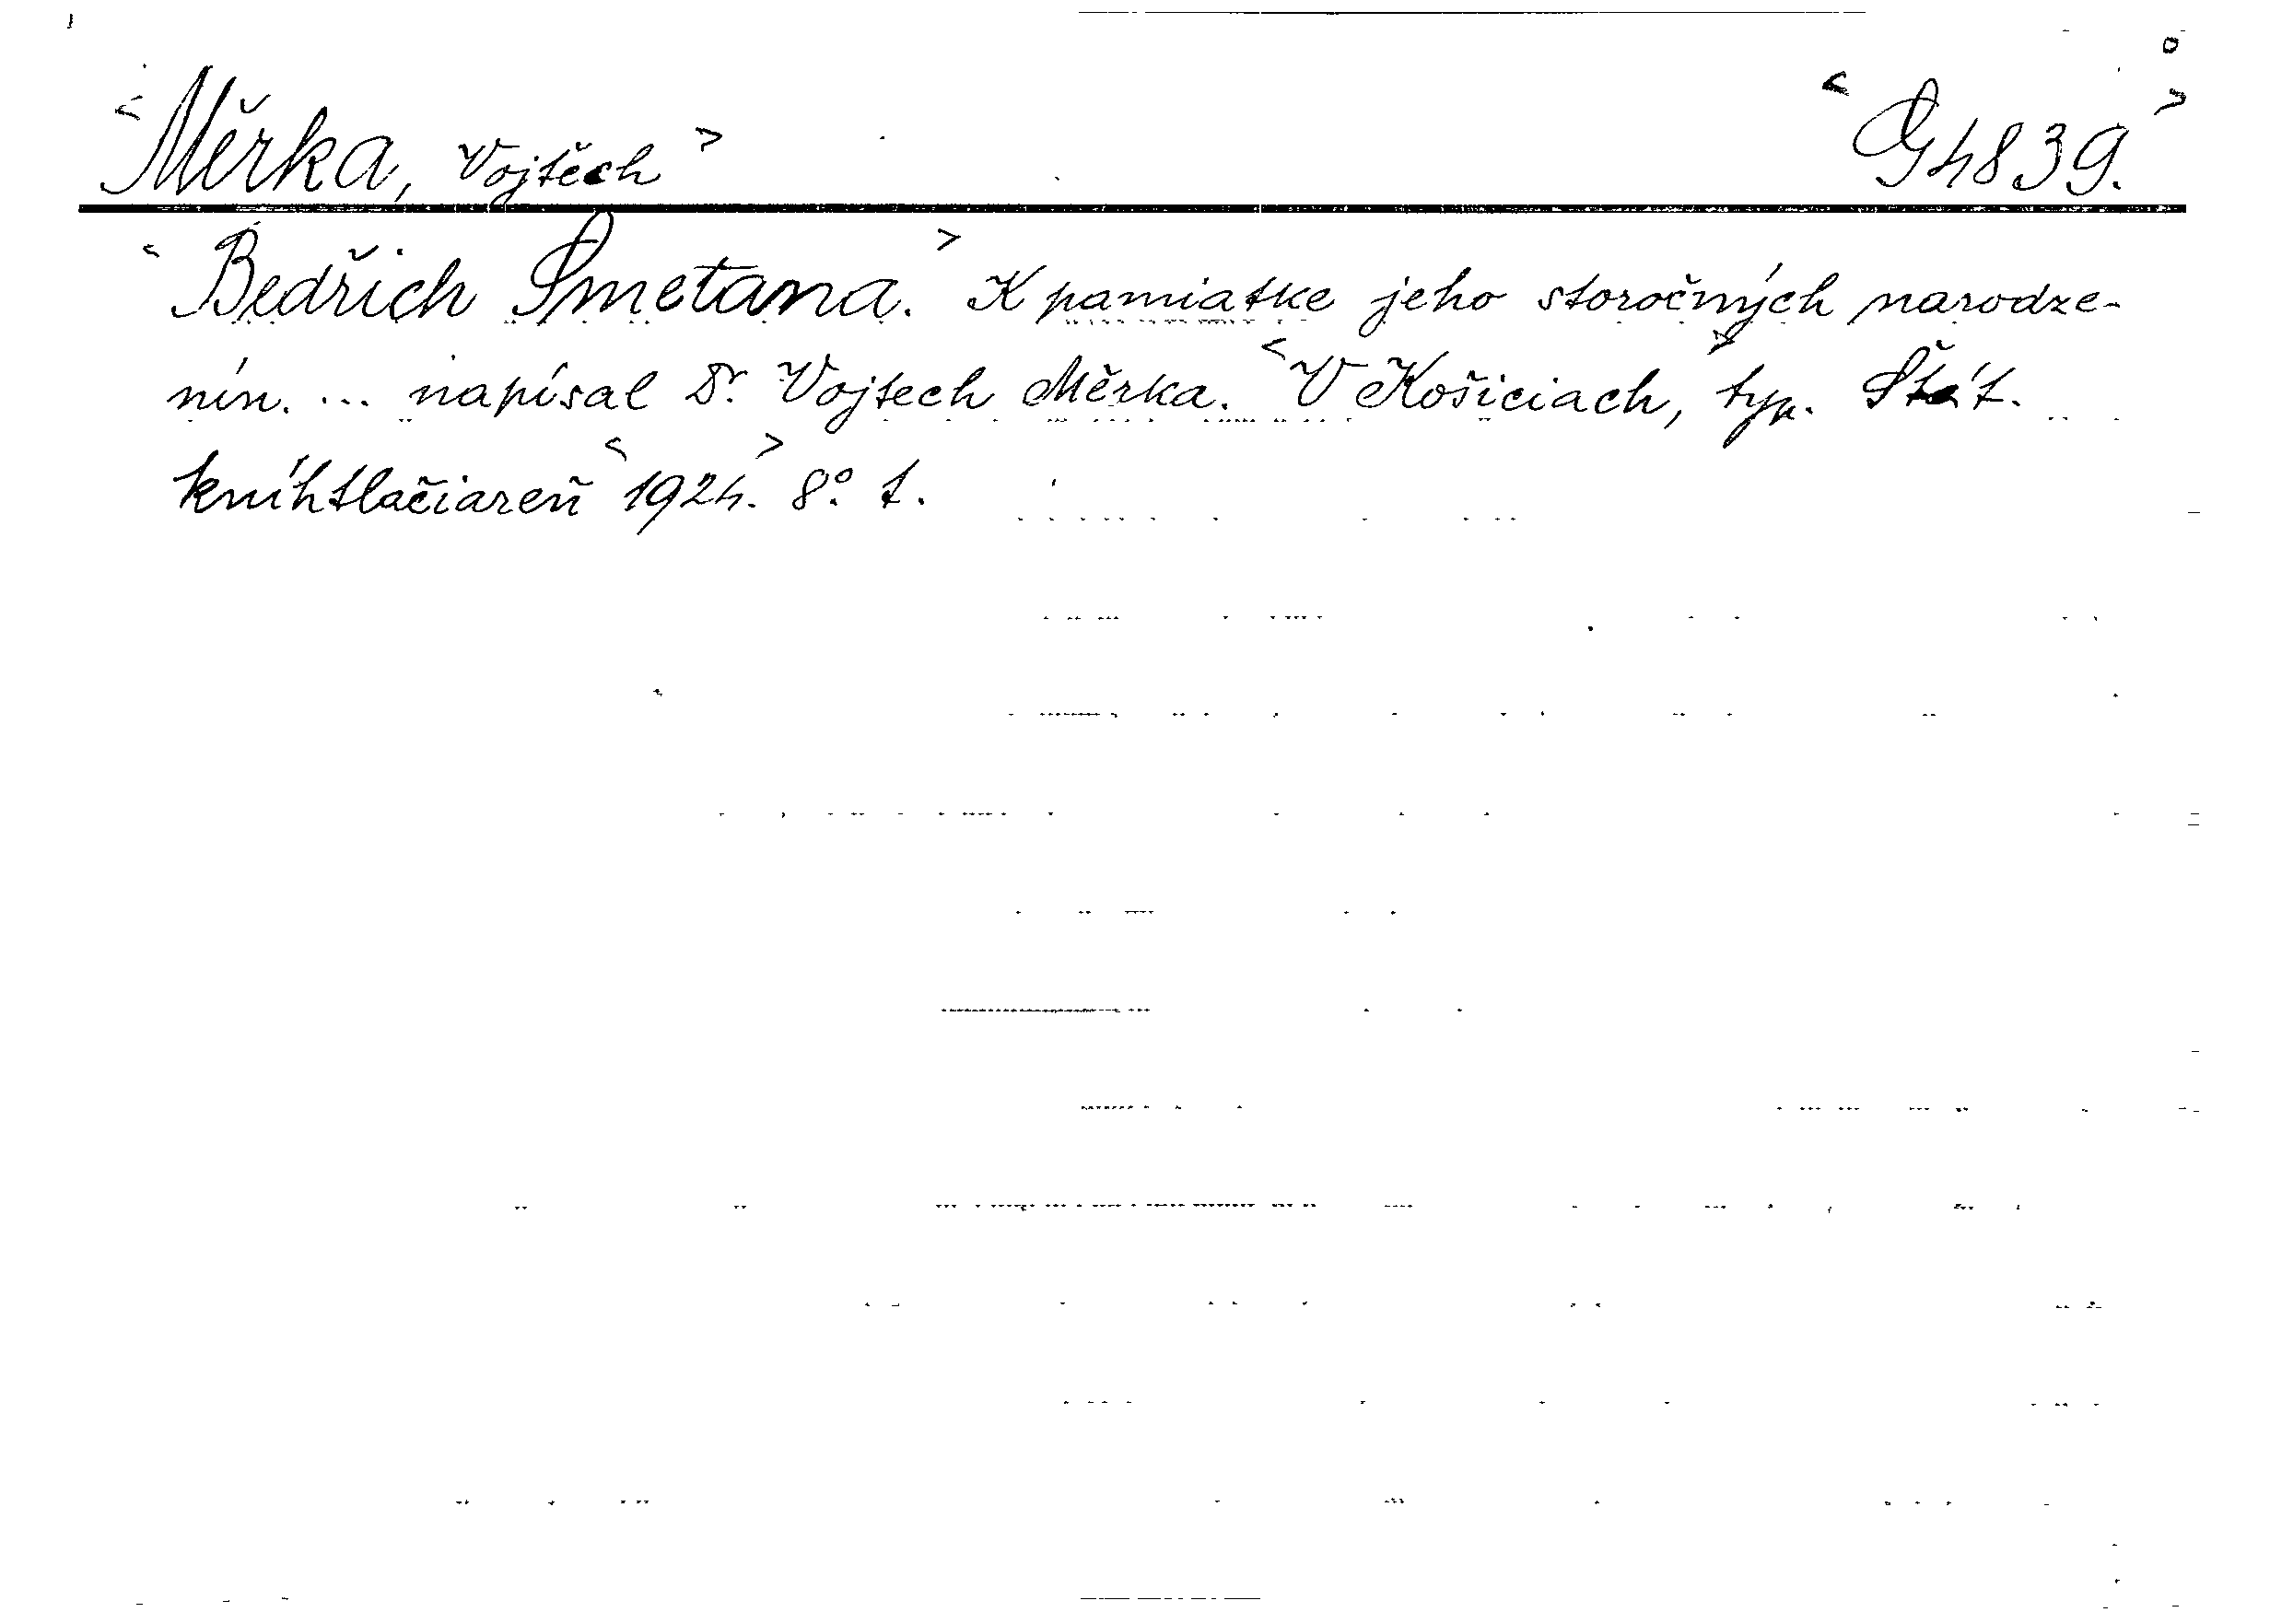 <Měrka, Vojtěch> <G4839.>
<Bedřich Smetana.> K pamiatke jeho storočných narodze-
nín. ... napísal Dr. Vojtech Měrka. <V Košiciach,> typ. Štát.
kníhtlačiareň <1924.> 8° t.